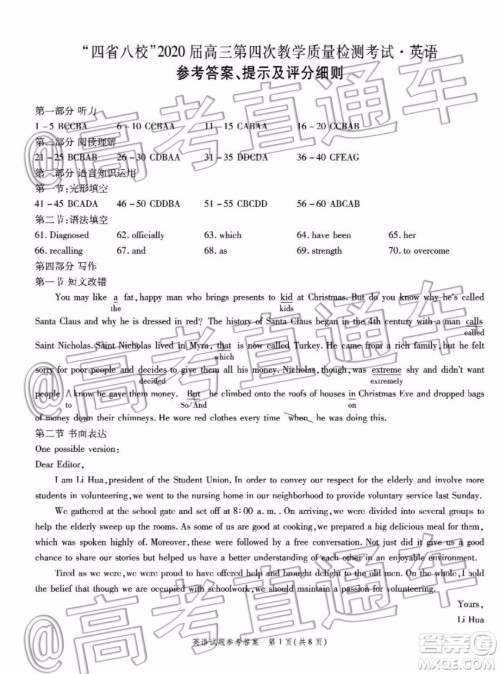 “四省八校”2020届高三第四次教学质量检测考试·英语
参考答案、提示及评分细则
第一部分 听力
1-5 BCCBA 6-10 CCABA 11-15 CABAA 16-20 CCBAB
第二部分 阅读理解
21-25 BCBAB 26-30 CDBAA 31-35 DDCDA 36-40 CFEAG
第三部分 语言知识运用
第一节:完形填空
41-45 BCADA 46-50 CDDBA 51-55 CDBDD 56-60 ABCAB
第二节:语法填空
61. Diagnosed 62. officially 63. which 64. have been 65. her
66. recalling 67. and 68. as 69. strength 70. to overcome
第四部分 写作
第一节 短文改错
You may like a fat, happy man who brings presents to kid at Christmas. But do you know why he's called
the kids
Santa Claus and why he is dressed in red? The history of Santa Claus began in the 4th century with a man calls
called
Saint Nicholas. Saint Nicholas lived in Myra, that is now called Turkey. He came from a rich family, but he felt
which
sorry for poor people and decides to give them all his money. Nicholas, though, was extreme shy and didn't want
decided extremely
people to know he gave them money. But he climbed onto the roofs of houses in Christmas Eve and dropped bags
So/And on
of money down their chimneys. He wore red clothes every time when he was doing this.
第二节 书面表达
One possible version:
Dear Editor,
I am Li Hua, president of the Student Union. In order to convey our respect for the elderly and involve more
students in volunteering, we went to the nursing home in our neighborhood to provide voluntary service last Sunday.
We gathered at the school gate and set off at 8:00 a.m. On arrival, we were divided into several groups to
help the elderly sweep up the rooms. At cooking time, some of us prepared a big delicious meal for them,
which was spoken highly of. Moreover, these well-behaved students didn't forget to give us a precious chance
to share our stories but helped us to have a better understanding of each other in an enjoyable environment.
Tired as we were, we have offered great help to the old men. On behalf of my school, I would
like to say that though we are occupied with schoolwork, we still have a passion for volunteering.
Yours,
Li Hua
英语试题参考答案 第1页(共8页)
@高考直通车
@高考直通车
@高考直通车